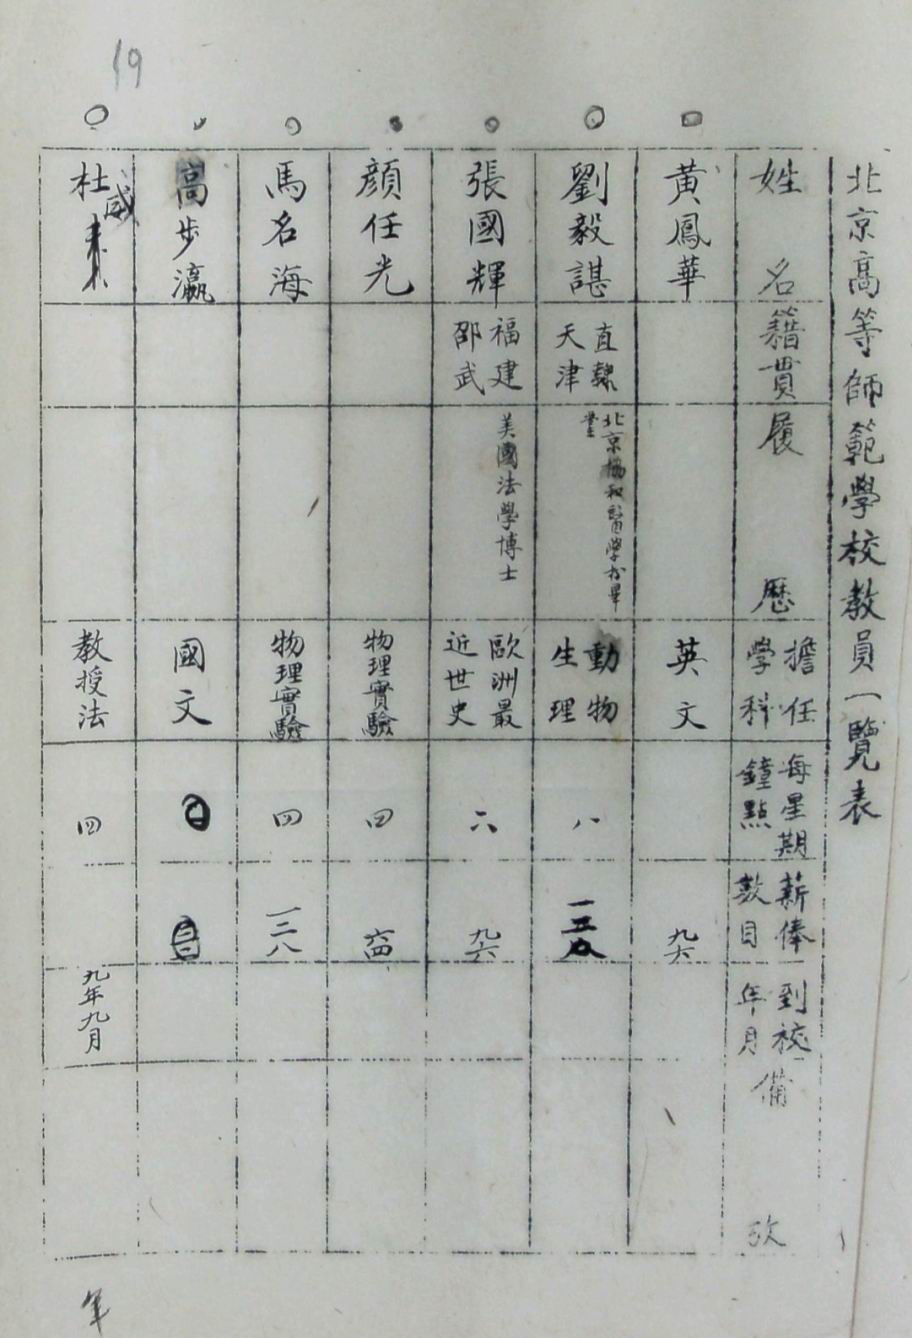 19
北京高等師範學校教員一覽表
姓名
籍貫
履歷
擔任
學科
每星期
鐘點
薪俸
數目
到校
年月
備攷
黃鳳華
英文
九六
劉毅諶
直隸
天津
北京協和醫學校畢
業
動物
生理
八
張國輝
福建
邵武
美國法學博士
歐洲最
近世史
六
九六
顏任光
物理實驗
四
六四
馬名海
物理實驗
四
一三八
高步瀛
國文
杜威
教授法
四
九年九月
年